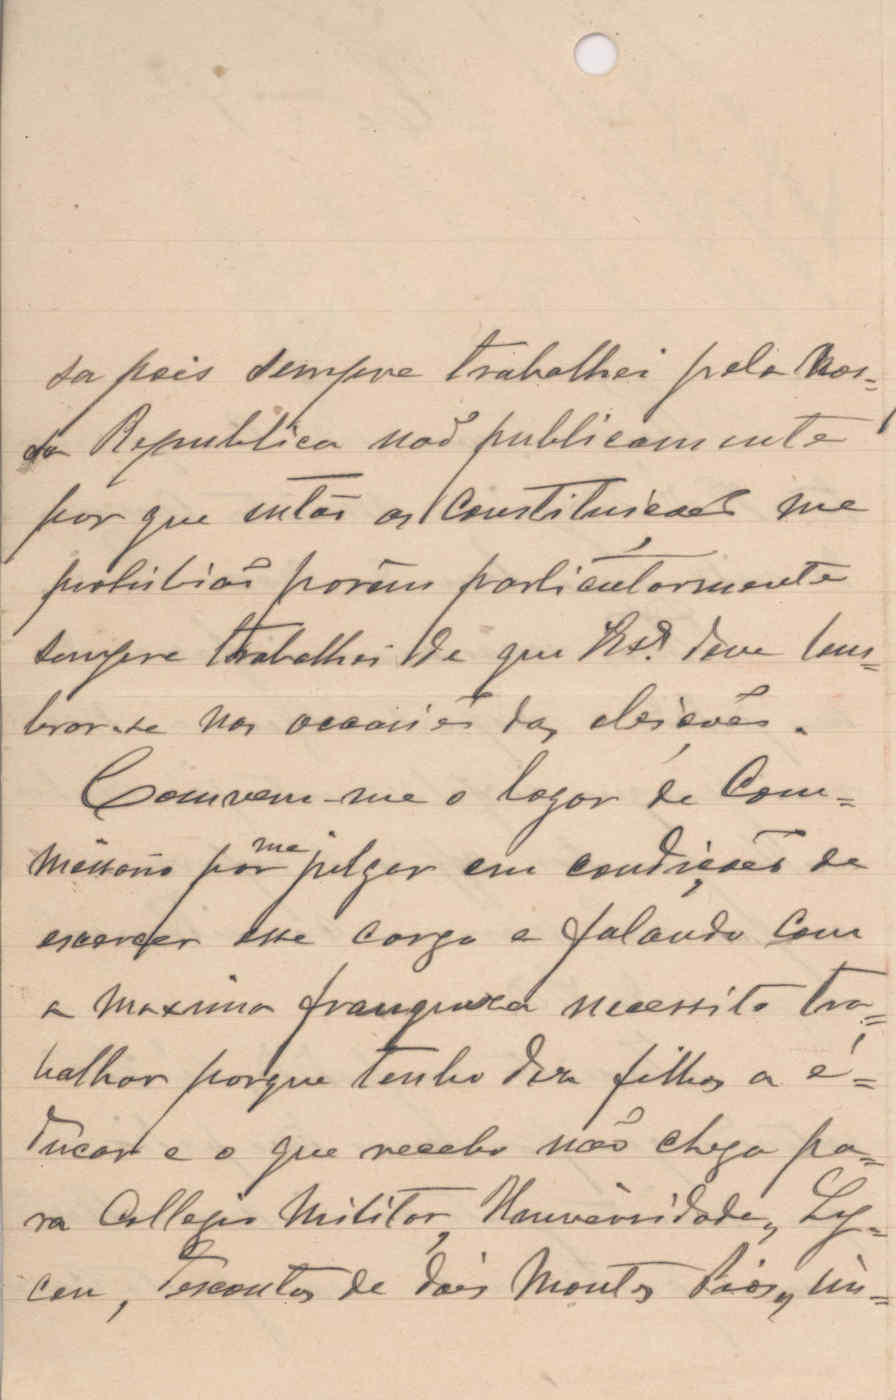 sa pois sempre trabalhei pela Nos=
sa Republica naõ publicamente
por que então as Constituicões me
prohibiaõ porêm particularmente
sempre trabalhei de que deve lem=
brar-se nas occasiões das eleicões.
Comvem-me o logar de Com=
missario por me julgar em condições de
exercer esse cargo e falando com
a maxima franqueza necessito tra=
balhar porque tenho dez filhos a e=
ducar e o que recebo não chega pa=
ra Collegio Militar, Huniversidade, Ly=
ceu, descontos de dois Montes Pios,